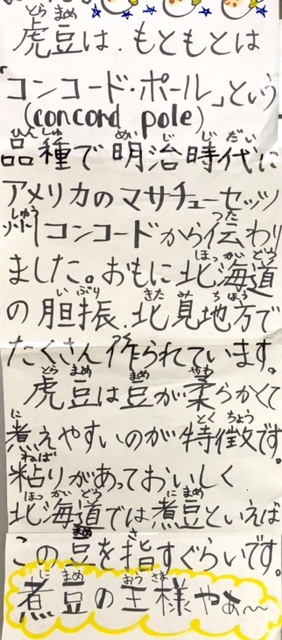 虎豆は、もともとは
「コンコード・ポール」という
(concord pole)
品種で明治時代に
アメリカのマサチューセッツ
州コンコードから伝わり
ました。おもに北海道
の胆振、北見地方で
たくさん作られています。
虎豆は豆が柔らかくて
煮えやすいのが特徴です。
粘りがあっておいしく
北海道では煮豆といえば
この豆を指すぐらいです。
煮豆の王様やぁ〜